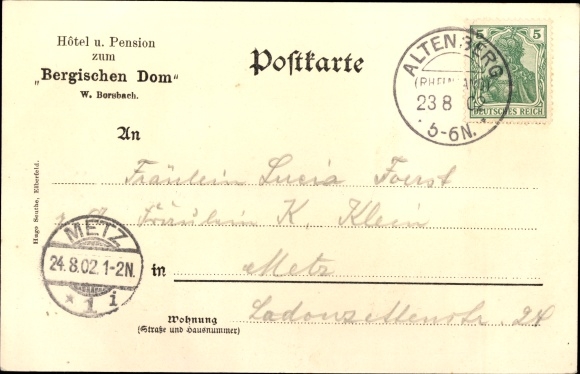 Hôtel u. Pension
zum
„Bergischen Dom"
W. Borsbach.
Postkarte
ALTENBERG
(RHEINLAND)
23 8 02
5-6N.
5 5
DEUTSCHES REICH
An
Fräulein Lucia Foerst
Fräulein K. Klein
in Metz
Wohnung
(Straße und Hausnummer)
24
METZ
24.8.02.1-2N.
* 1 i
Hugo Seuthe, Elberfeld.